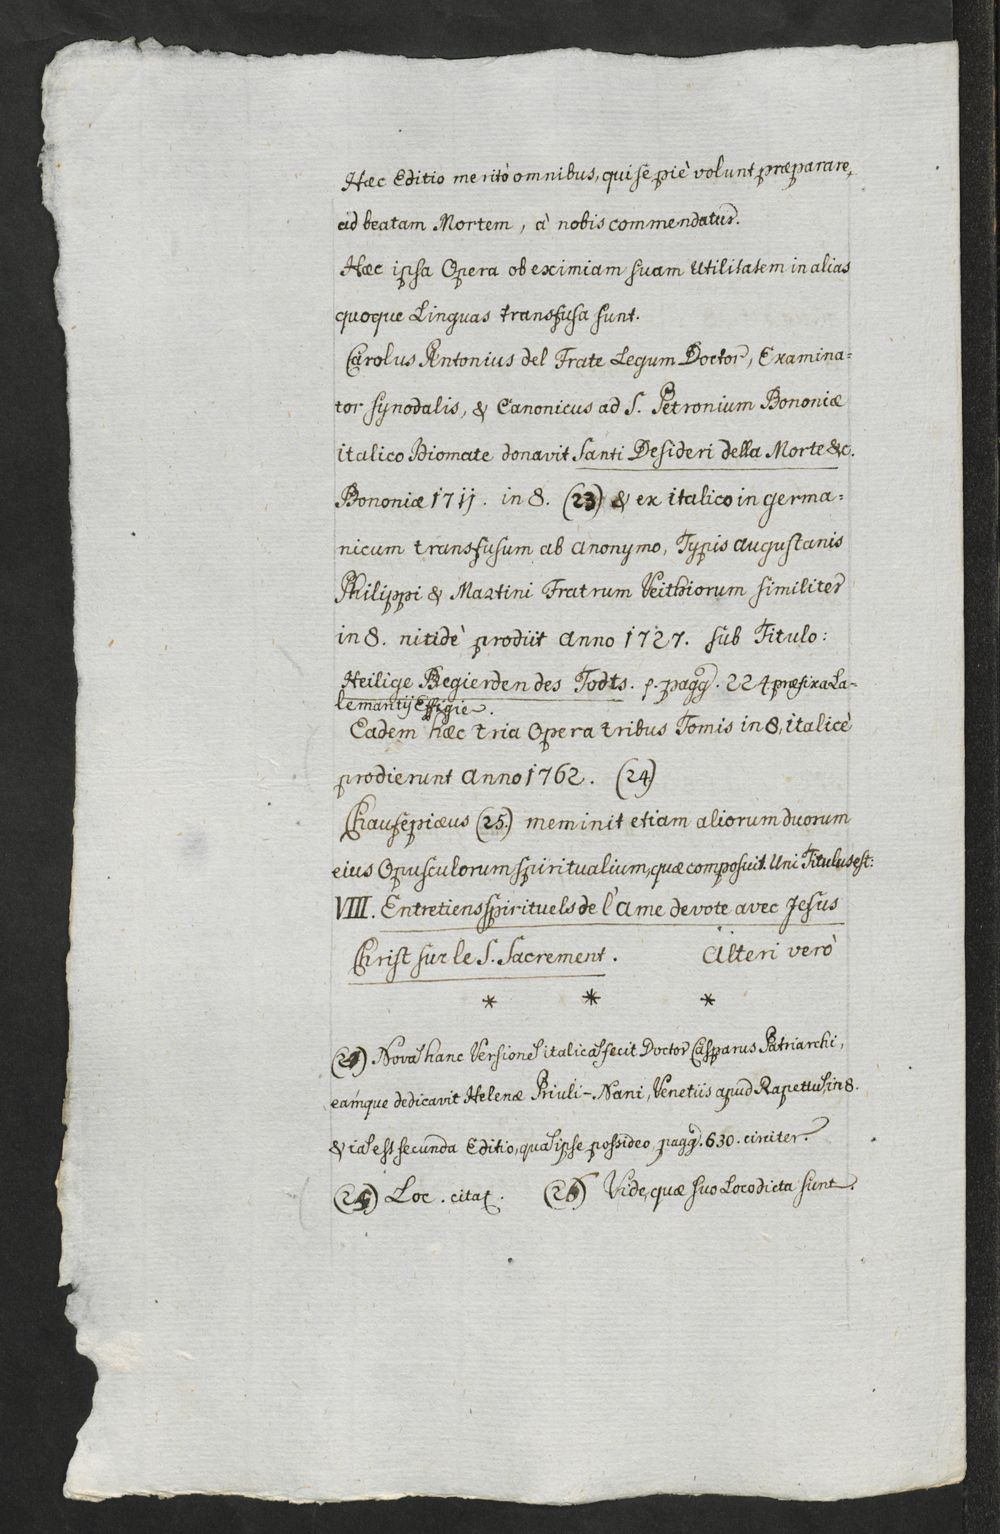 Hæc Editio meritò omnibus, qui se piè volunt præparare,
ad beatam Mortem, à nobis commendatur.
Hæc ipsa Opera ob eximiam suam Utilitatem in alias
quoque Linguas transfusa sunt.
Carolus Antonius del Frate Legum Doctor, Examina=
tor Synodalis, & Canonicus ad S. Petronium Bononiæ
italico Idiomate donavit Santi Desideri della Morte &c.
Bononiæ 1711. in 8. (23) & ex italico in germa=
nicum transfusum ab Anonymo, Typis Augustanis
Philippi & Martini Fratrum Veithiorum similiter
in 8. nitidè prodiit Anno 1727. sub Titulo:
Heilige Begierden des Todts. p. pagg. 224 præfixa La-
lemantij Effigie.
Eadem hæc tria Opera tribus Tomis in 8, italicè
prodierunt Anno 1762. (24)
Chausepiæus (25.) meminit etiam aliorum duorum
eius Opusculorum spiritualium, quæ composuit. Uni Titulus est:
VIII. Entretiens spirituels de l'Ame devote avec Jesus
Christ sur le S. Sacrement. Alteri verò
* * *
(24) Novā hanc Versionē italicā fecit Doctor Casparus Patriarchi,
eamque dedicavit Helenæ Priuli-Nani, Venetiis apud Rapettū, in 8.
& iā est secunda Editio, quā ipse possideo pagg. 630. circiter.
(25) Loc. citat. (26) Vide, quæ suo Loco dicta sunt.